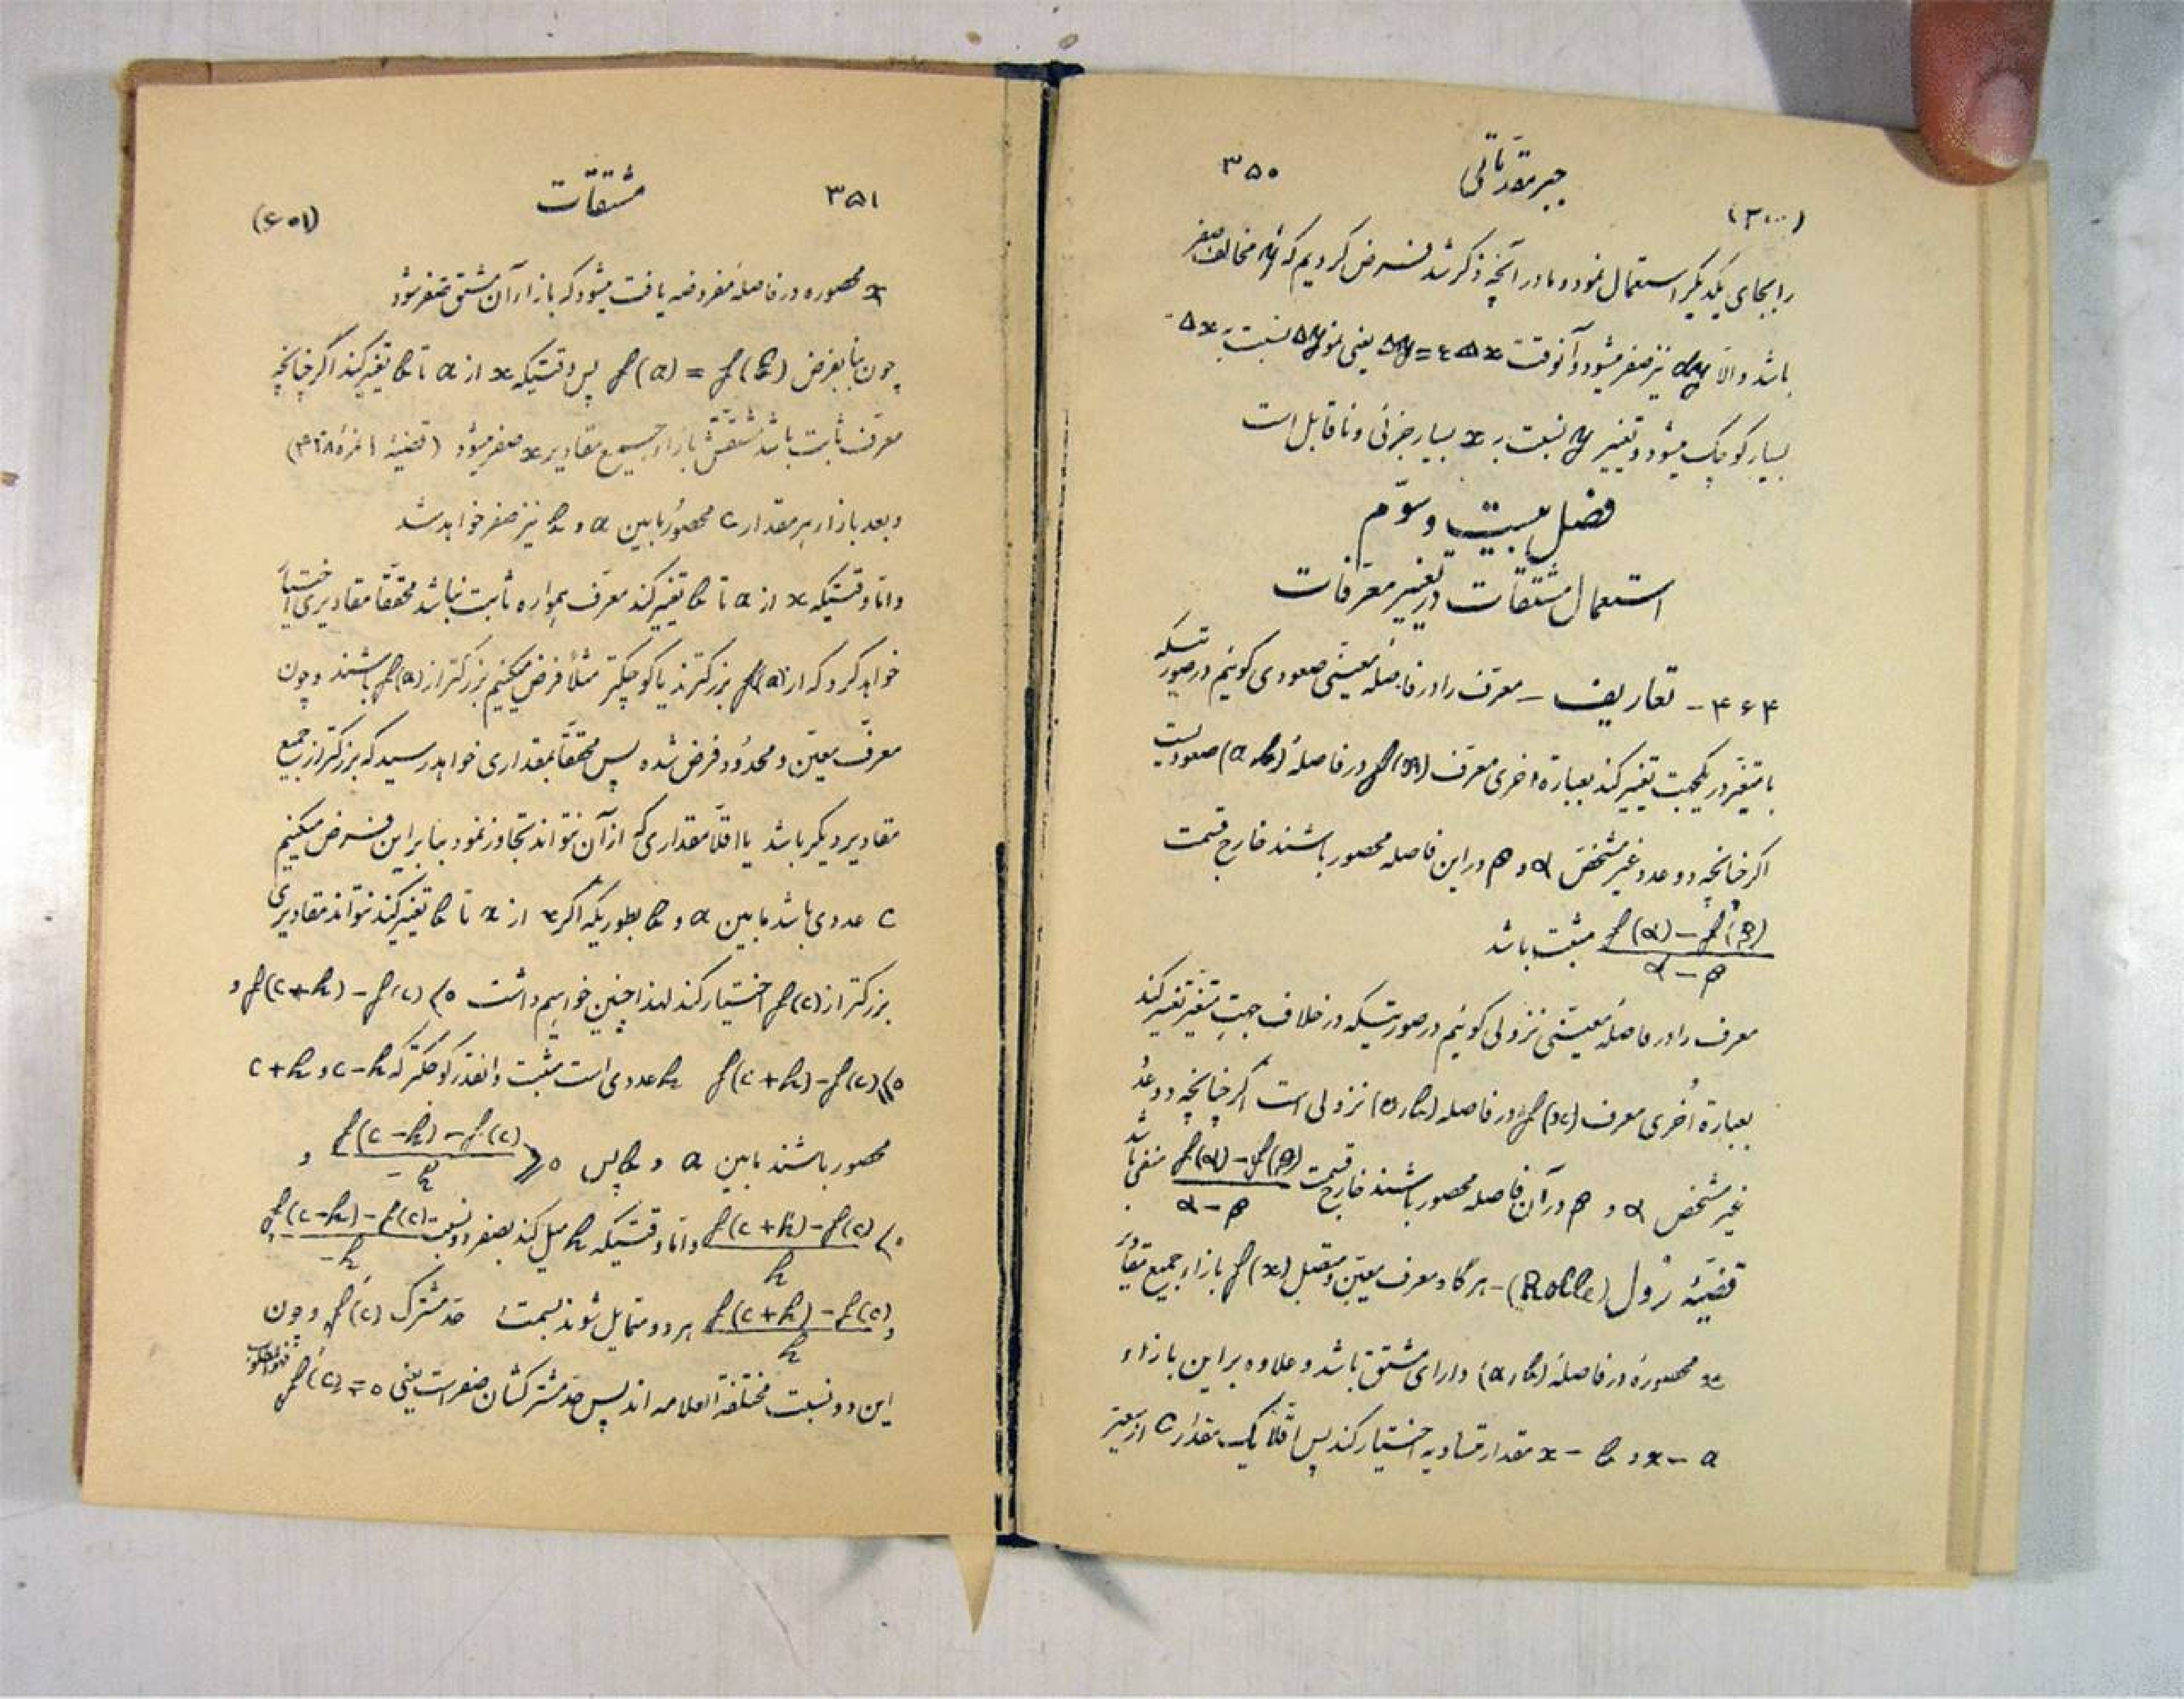 جبر مقدماتی
۳۵۰
را بجای یکدیگر استعمال نمود و ما در آنچه ذکر شد فرض کردیم که y′ مخالف صفر
باشد و الّا dy نیز صفر میشود و آنوقت Δy = ε Δx یعنی نمو Δy نسبت به Δx
بسیار کوچک میشود و تغییر y نسبت به x بسیار جزئی و ناقابل است
فصل بیست و سوّم
استعمال مشتقات در تغییر معرفات
۴۶۴ - تعاریف – معرف را در فاصله معیّنی صعودی گوئیم در صورتیکه
با متغیّر در یکجهت تغییر کند بعبارة اخری معرف f(x) در فاصلهٔ (a, b) صعودیست
اگر چنانچه دو عدد غیر مشخص α و β در این فاصله محصور باشند خارج قسمت
(f(α) – f(β)) / (α – β) مثبت باشد
معرف را در فاصله معیّنی نزولی گوئیم در صورتیکه در خلاف جهت متغیّر تغییر کند
بعبارة اُخری معرف f(x) در فاصله (a, b) نزولی است اگر چنانچه دو عدد
غیر مشخص α و β در آن فاصله محصور باشند خارج قسمت (f(α) – f(β)) / (α – β) منفی باشد
قضیّهٔ رُول (Rolle) – هرگاه معرف معیّن و متصل f(x) بازاء جمیع مقادیر
x محصوره در فاصلهٔ (a, b) دارای مشتق باشد و علاوه بر این بازاء
x – a و x – b مقدار متساویه اختیار کند پس اقلاً یک مقدار c از متغیّر
۳۵۱
مشتقات
x محصوره در فاصلهٔ مفروضه یافت میشود که بازاء آن مشتق صفر شود
چون بنا بفرض f(a) = f(b) پس وقتیکه x از a تا b تغییر کند اگر چنانچه
معرف ثابت باشد مشتقش بازاء جمیع مقادیر x صفر میشود (قضیّهٔ ۱ نمرهٔ ۴۳۸)
و بعد بازاء هر مقدار c محصور مابین a و b نیز صفر خواهد شد
و امّا وقتیکه x از a تا b تغییر کند معرف همواره ثابت نباشد محققاً مقادیری اختیار
خواهد کرد که از f(a) بزرگترند یا کوچکتر مثلاً فرض میکنیم بزرگتر از f(a) باشند و چون
معرف معیّن و محدود فرض شده پس محققاً بمقداری خواهد رسید که بزرگتر از جمیع
مقادیر دیگر باشد یا اقلاً مقداری که از آن نتواند تجاوز نمود بنابراین فرض میکنیم
c عددی باشد مابین a و b بطوریکه اگر x از a تا b تغییر کند نتواند مقادیری
بزرگتر از f(c) اختیار کند لهذا چنین خواهیم داشت f(c+h) – f(c) ⩽ 0 و
f(c+h) – f(c) ⩽ 0 h عددی است مثبت و آنقدر کوچکتر که c–h و c+h
محصور باشند مابین a و b پس (f(c–h) – f(c)) / –h ⩾ 0 و
(f(c+h) – f(c)) / h ⩽ 0 و امّا وقتیکه h میل کند بصفر دو نسبت (f(c–h) – f(c)) / –h
و (f(c+h) – f(c)) / h هر دو متمایل شوند بسمت حدّ مشترک f′(c) و چون
این دو نسبت مختلفة العلامه‌اند پس حدّ مشترکشان صفر است یعنی f′(c) = 0